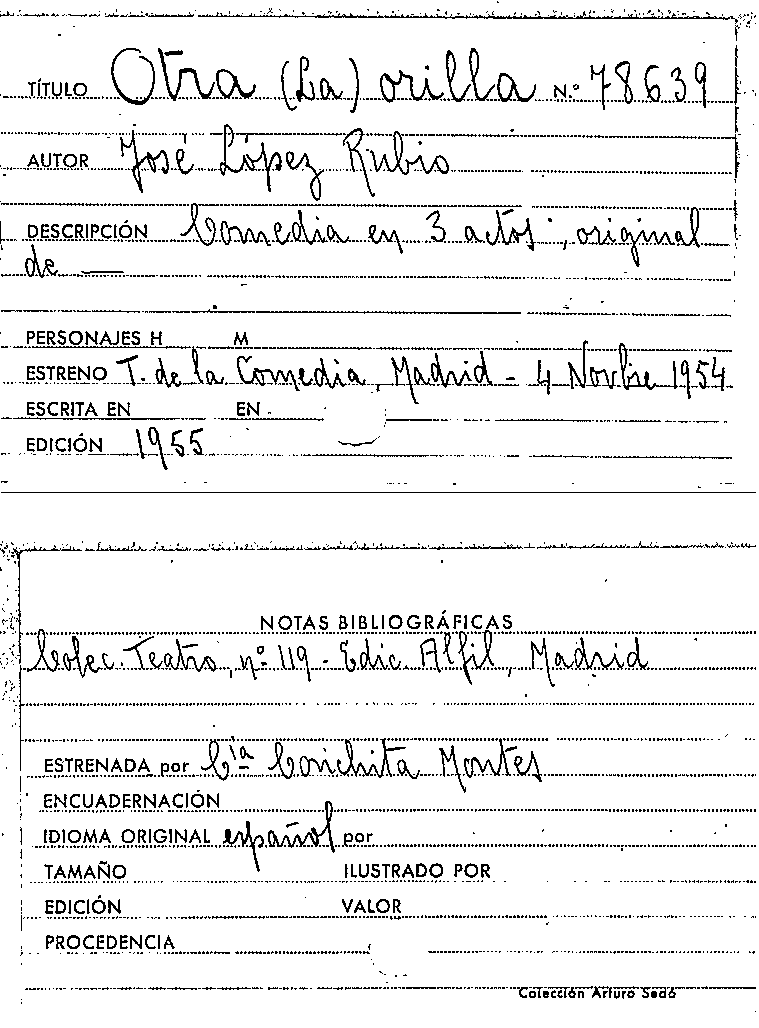 TÍTULO Otra (La) orilla N.º 78639
AUTOR José López Rubio
DESCRIPCIÓN Comedia en 3 actos, original
de —
PERSONAJES H M
ESTRENO T. de la Comedia, Madrid - 4 Novbre 1954
ESCRITA EN EN
EDICIÓN 1955
NOTAS BIBLIOGRÁFICAS
Colec. Teatro, nº 119 - Edic. Alfil, Madrid
ESTRENADA por Cía Conchita Montes
ENCUADERNACIÓN
IDIOMA ORIGINAL español por
TAMAÑO ILUSTRADO POR
EDICIÓN VALOR
PROCEDENCIA
Colección Arturo Sedó